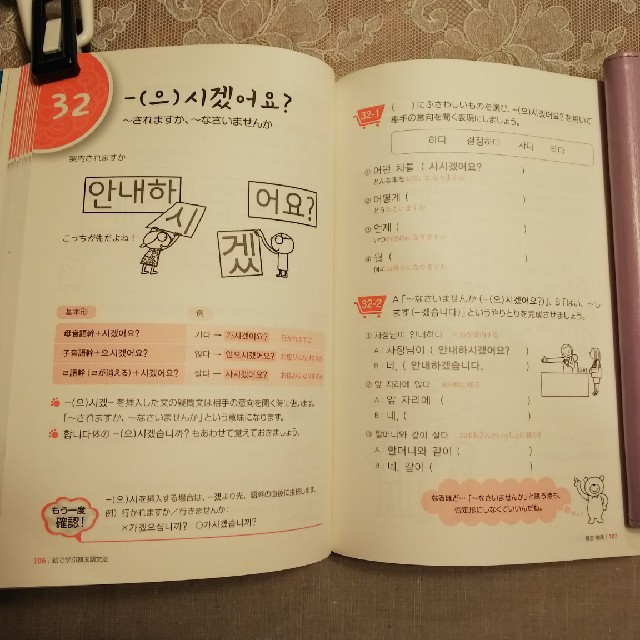 32
-(으)시겠어요?
～されますか、～なさいませんか
案内されますか
안내하
시
겠
어요?
こっちが先だよね！
基本形
例
母音語幹+시겠어요?
가다 → 가시겠어요? 行かれますか
子音語幹+으시겠어요?
앉다 → 앉으시겠어요?
ㄹ語幹 (ㄹが消える) +시겠어요?
살다 → 사시겠어요?
-(으)시겠- を挿入した文の疑問文は相手の意向を聞く時に使います。
「～されますか、～なさいませんか」という意味になります。
합니다体の -(으)시겠습니까? もあわせて覚えておきましょう。
もう一度
確認！
-(으)시を挿入する場合は、-겠より先、語幹の直後に挿入します。
例) 行かれますか／行きませんか:
×가겠으십니까? ○가시겠습니까?
106 絵で学ぶ韓国語文法
32-1
( )にふさわしいものを選び、-(으)시겠어요?を用いて
相手の意向を聞く表現にしましょう。
하다 결정하다 사다
① 어떤 차를 ( 사시겠어요? )
② 어떻게 ( )
③ 언제 ( )
④ ( )
32-2
A「～なさいませんか (-(으)시겠어요?)」、B「はい、～し
ます (-겠습니다)」というやりとりを完成させましょう。
① 사장님이 안내하다
A: 사장님이 ( 안내하시겠어요? )
B: 네, ( 안내하겠습니다. )
② 앞 자리에 앉다
A: 앞 자리에 ( )
B: 네, ( )
③ 할머니와 같이 살다
A: 할머니와 같이 ( )
B: 네, 같이 ( )
なるほど…「～なさいませんか」と誘う時も、
否定形にしなくていいんだね。
107